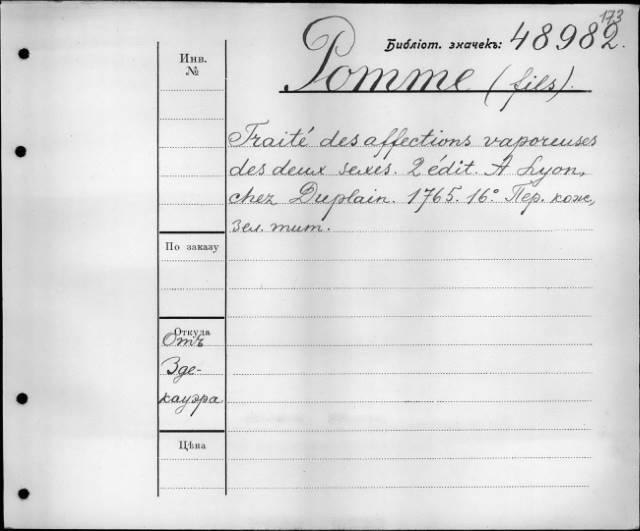 173
Библіот. значекъ: 48982.
Инв.
№
Pomme (fils).
Traité des affections vaporeuses
des deux sexes. 2 édit. A Lyon,
chez Duplain. 1765. 16° Пер. кож,
зел. тит.
По заказу
Откуда
Отъ
Зде-
кауэра
Цѣна